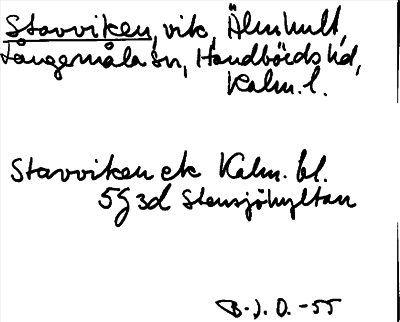 Stavviken, vik, Älmhult,
Långemåla sn, Handbörds hd,
Kalm. l.
Stavviken ek Kalm. bl.
5G 3d Stensjöhyltan
B. J. O. -55